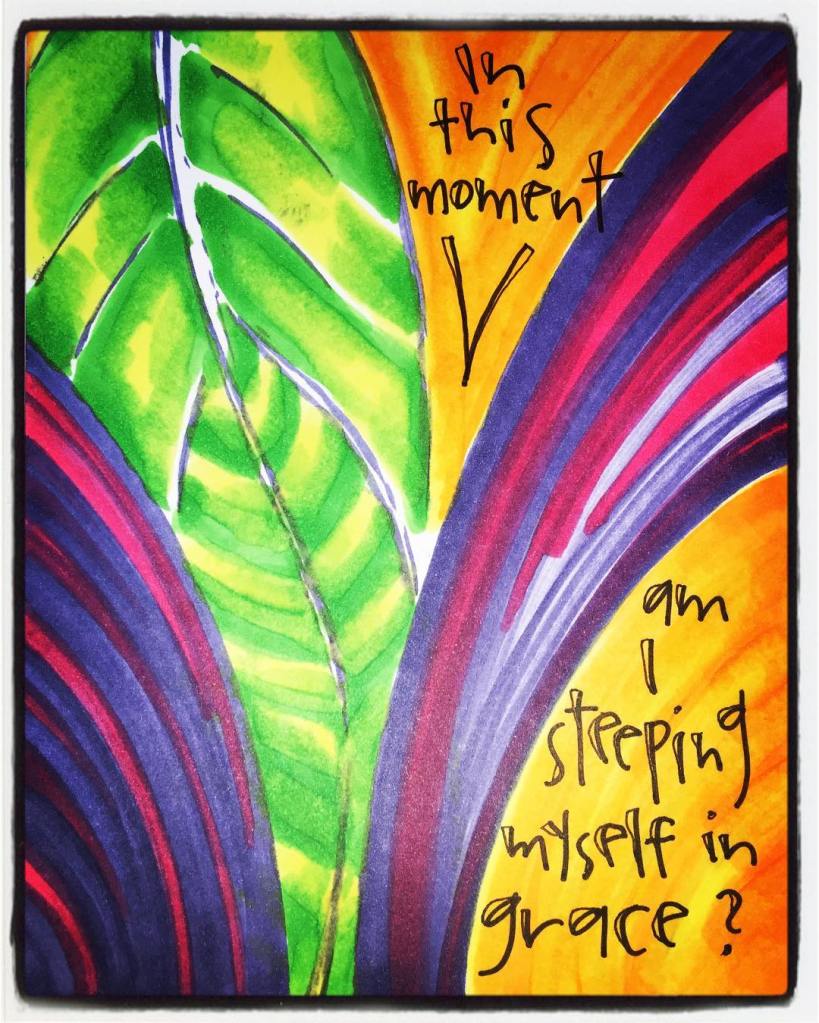 In
this
moment
am
I
steeping
myself in
grace?